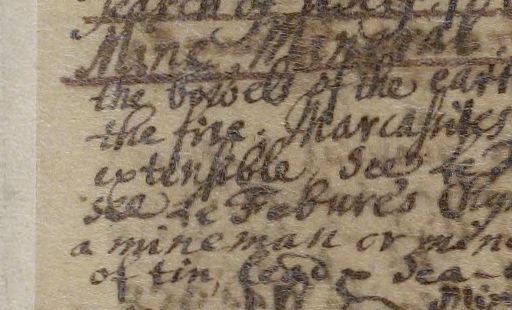 Mine, Mineral,
the bowels of the eart
the fire. Marcasites
extensible. See le F
see le Febure's Chym
a mineman or mine
of tin, lead & Sea-